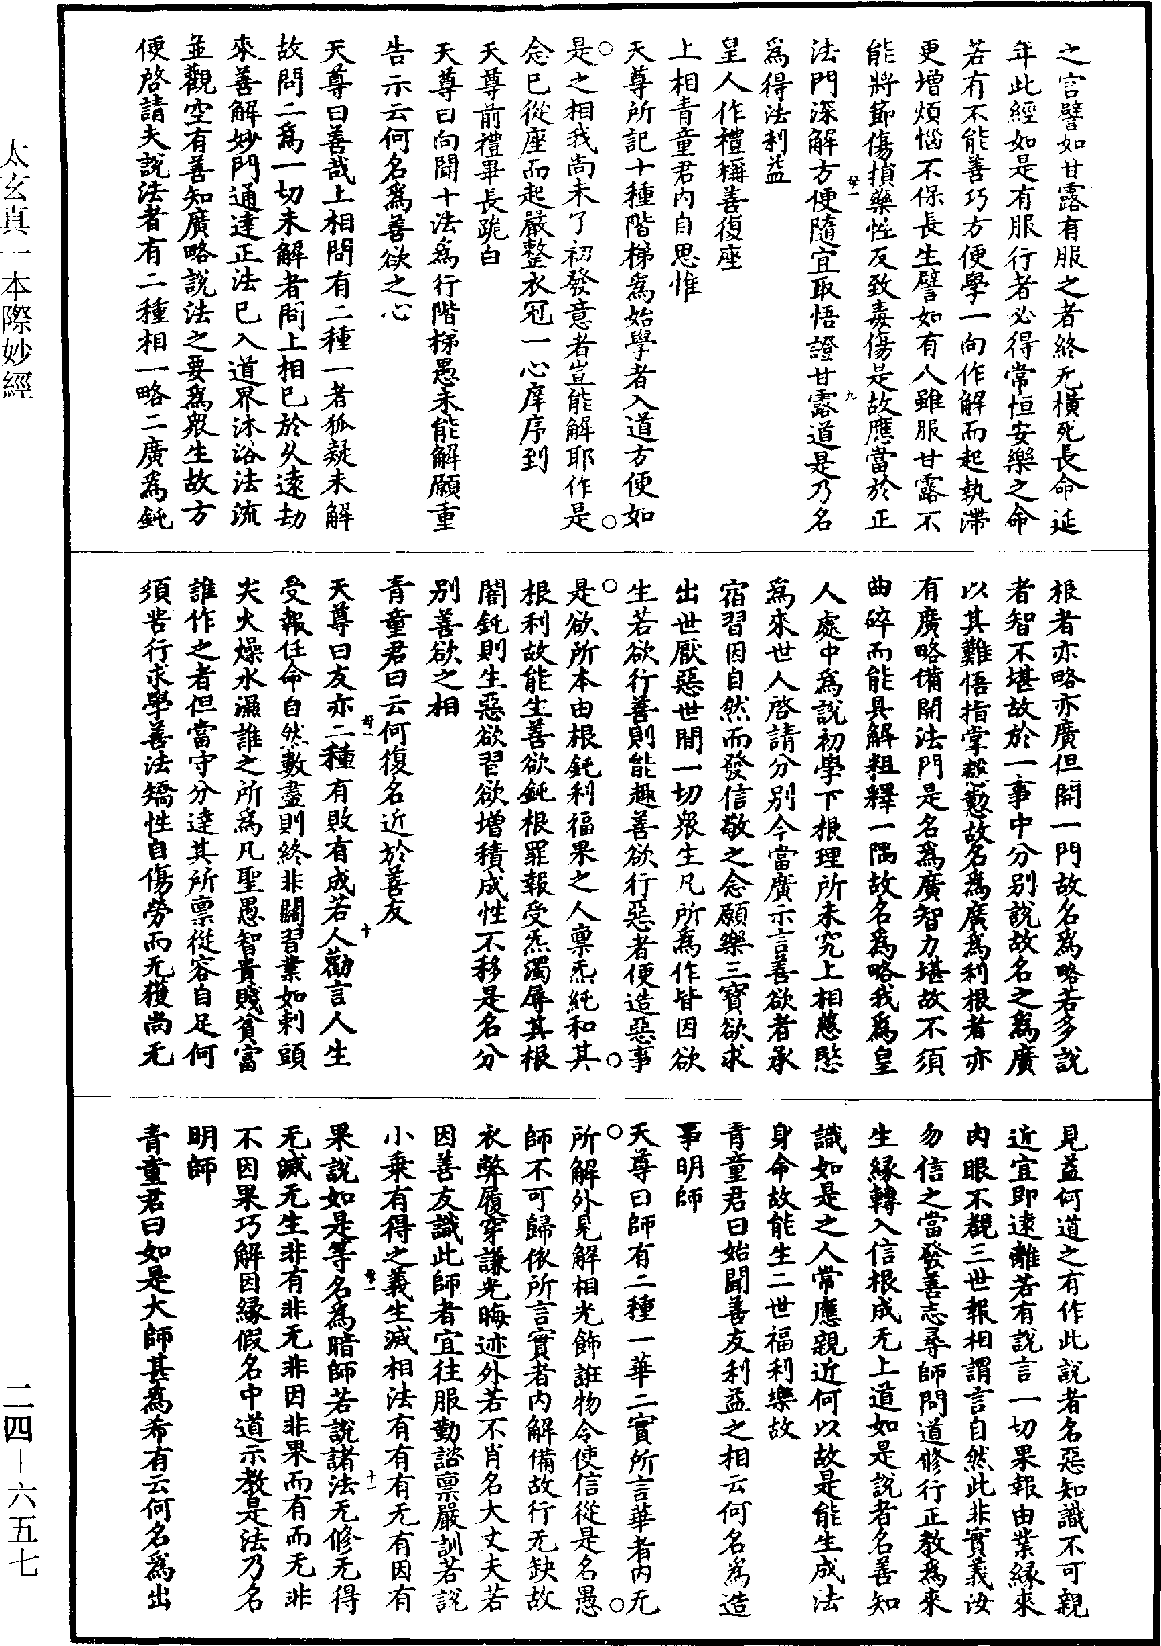 之言譬如甘露有服之者終无橫死長命延
年此經如是有服行者必得常恒安樂之命
若有不能善巧方便學一向作解而起執滯
更增煩惱不保長生譬如有人雖服甘露不
能將節傷損藥性反致毒傷是故應當於正
法門深解方便隨宜取悟證甘露道是乃名
為得法利益
皇人作禮稱善復座
上相青童君内自思惟
天尊所記十種階梯為始學者入道方便如
是之相我尚未了初發意者豈能解耶作是
念已從座而起嚴整衣冠一心庠序到
天尊前禮畢長跪白
天尊曰向聞十法為行階梯愚未能解願重
告示云何名為善欲之心
天尊曰善哉上相問有二種一者狐疑未解
故問二為一切未解者問上相已於久遠劫
來善解妙門通達正法已入道界沐浴法流
並觀空有善知廣略說法之要為眾生故方
便啓請夫說法者有二種相一略二廣為鈍
根者亦略亦廣但開一門故名為略若多說
者智不堪故於一事中分別說故名之為廣
以其難悟指掌慇懃故名為廣為利根者亦
有廣略備開法門是名為廣智力堪故不須
曲碎而能具解粗釋一隅故名為略我為皇
人處中為說初學下根理所未究上相慈愍
為來世人啓請分別今當廣示言善欲者承
宿習因自然而發信敬之念願樂三寶欲求
出世厭惡世間一切眾生凡所為作皆因欲
生若欲行善則能趣善欲行惡者便造惡事
是欲所本由根鈍利福果之人禀炁純和其
根利故能生善欲鈍根罪報受炁濁辱其根
闇鈍則生惡欲習欲增積成性不移是名分
別善欲之相
青童君曰云何復名近於善友
天尊曰友亦二種有敗有成若人勸言人生
受報任命自然數盡則終非關習業如剌頭
尖火燥水濕誰之所為凡聖愚智貴賤貧富
誰作之者但當守分達其所禀從容自足何
須苦行求學善法矯性自傷勞而无獲尚无
見益何道之有作此說者名惡知識不可親
近宜即遠離若有說言一切果報由業緣來
肉眼不覩三世報相謂言自然此非實義汝
勿信之當發善志尋師問道修行正教為來
生緣轉入信根成无上道如是說者名善知
識如是之人常應親近何以故是能生成法
身命故能生二世福利樂故
青童君曰始聞善友利益之相云何名為造
事明師
天尊曰師有二種一華二實所言華者内无
所解外見解相光飾誑物令使信從是名愚
師不可歸依所言實者内解備故行无缺故
衣弊履穿謙光晦迹外若不肖名大丈夫若
因善友識此師者宜往服勤諮禀嚴訓若說
小乘有得之義生滅相法有有有无有因有
果說如是等名為暗師若說諸法无修无得
无滅无生非有非无非因非果而有而无非
不因果巧解因緣假名中道示教是法乃名
明師
青童君曰如是大師甚為希有云何名為出
太玄真一本際妙經
二四—六五七